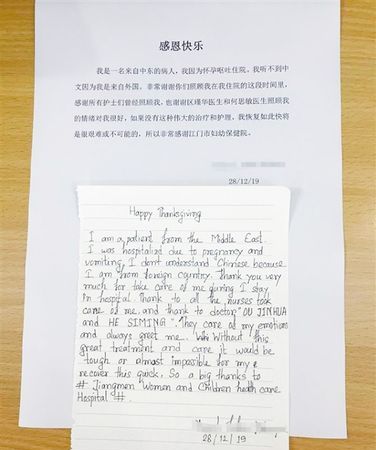 感恩快乐
我是一名来自中东的病人，我因为怀孕呕吐住院。我听不到中
文因为我是来自外国。非常谢谢你们照顾我在我住院的这段时间里，
感谢所有护士们曾经照顾我，也谢谢区瑾华医生和何思敏医生照顾我
的情绪对我很好，如果没有这种伟大的治疗和护理，我恢复如此快将
是很艰难或不可能的，所以非常感谢江门市妇幼保健院。
28/12/19
Happy Thanksgiving
I am a patient from the Middle East.
I was hospitalized due to pregnancy and
vomiting, I don't understand "Chinese because
I am from foreign country. Thank you very
much for take care of me during I stay
in hospital. Thank to all the nurses took
care of me. and thank to doctor "OU JINHUA
and HE SIMING". They care of my emotions
and always greet me. Without "this
great treatment and care it would be
tough or almost impossible for my
recover this quick. So a big thanks to
# Jiangmen Women and Children heath care
Hospital #
28/12/19